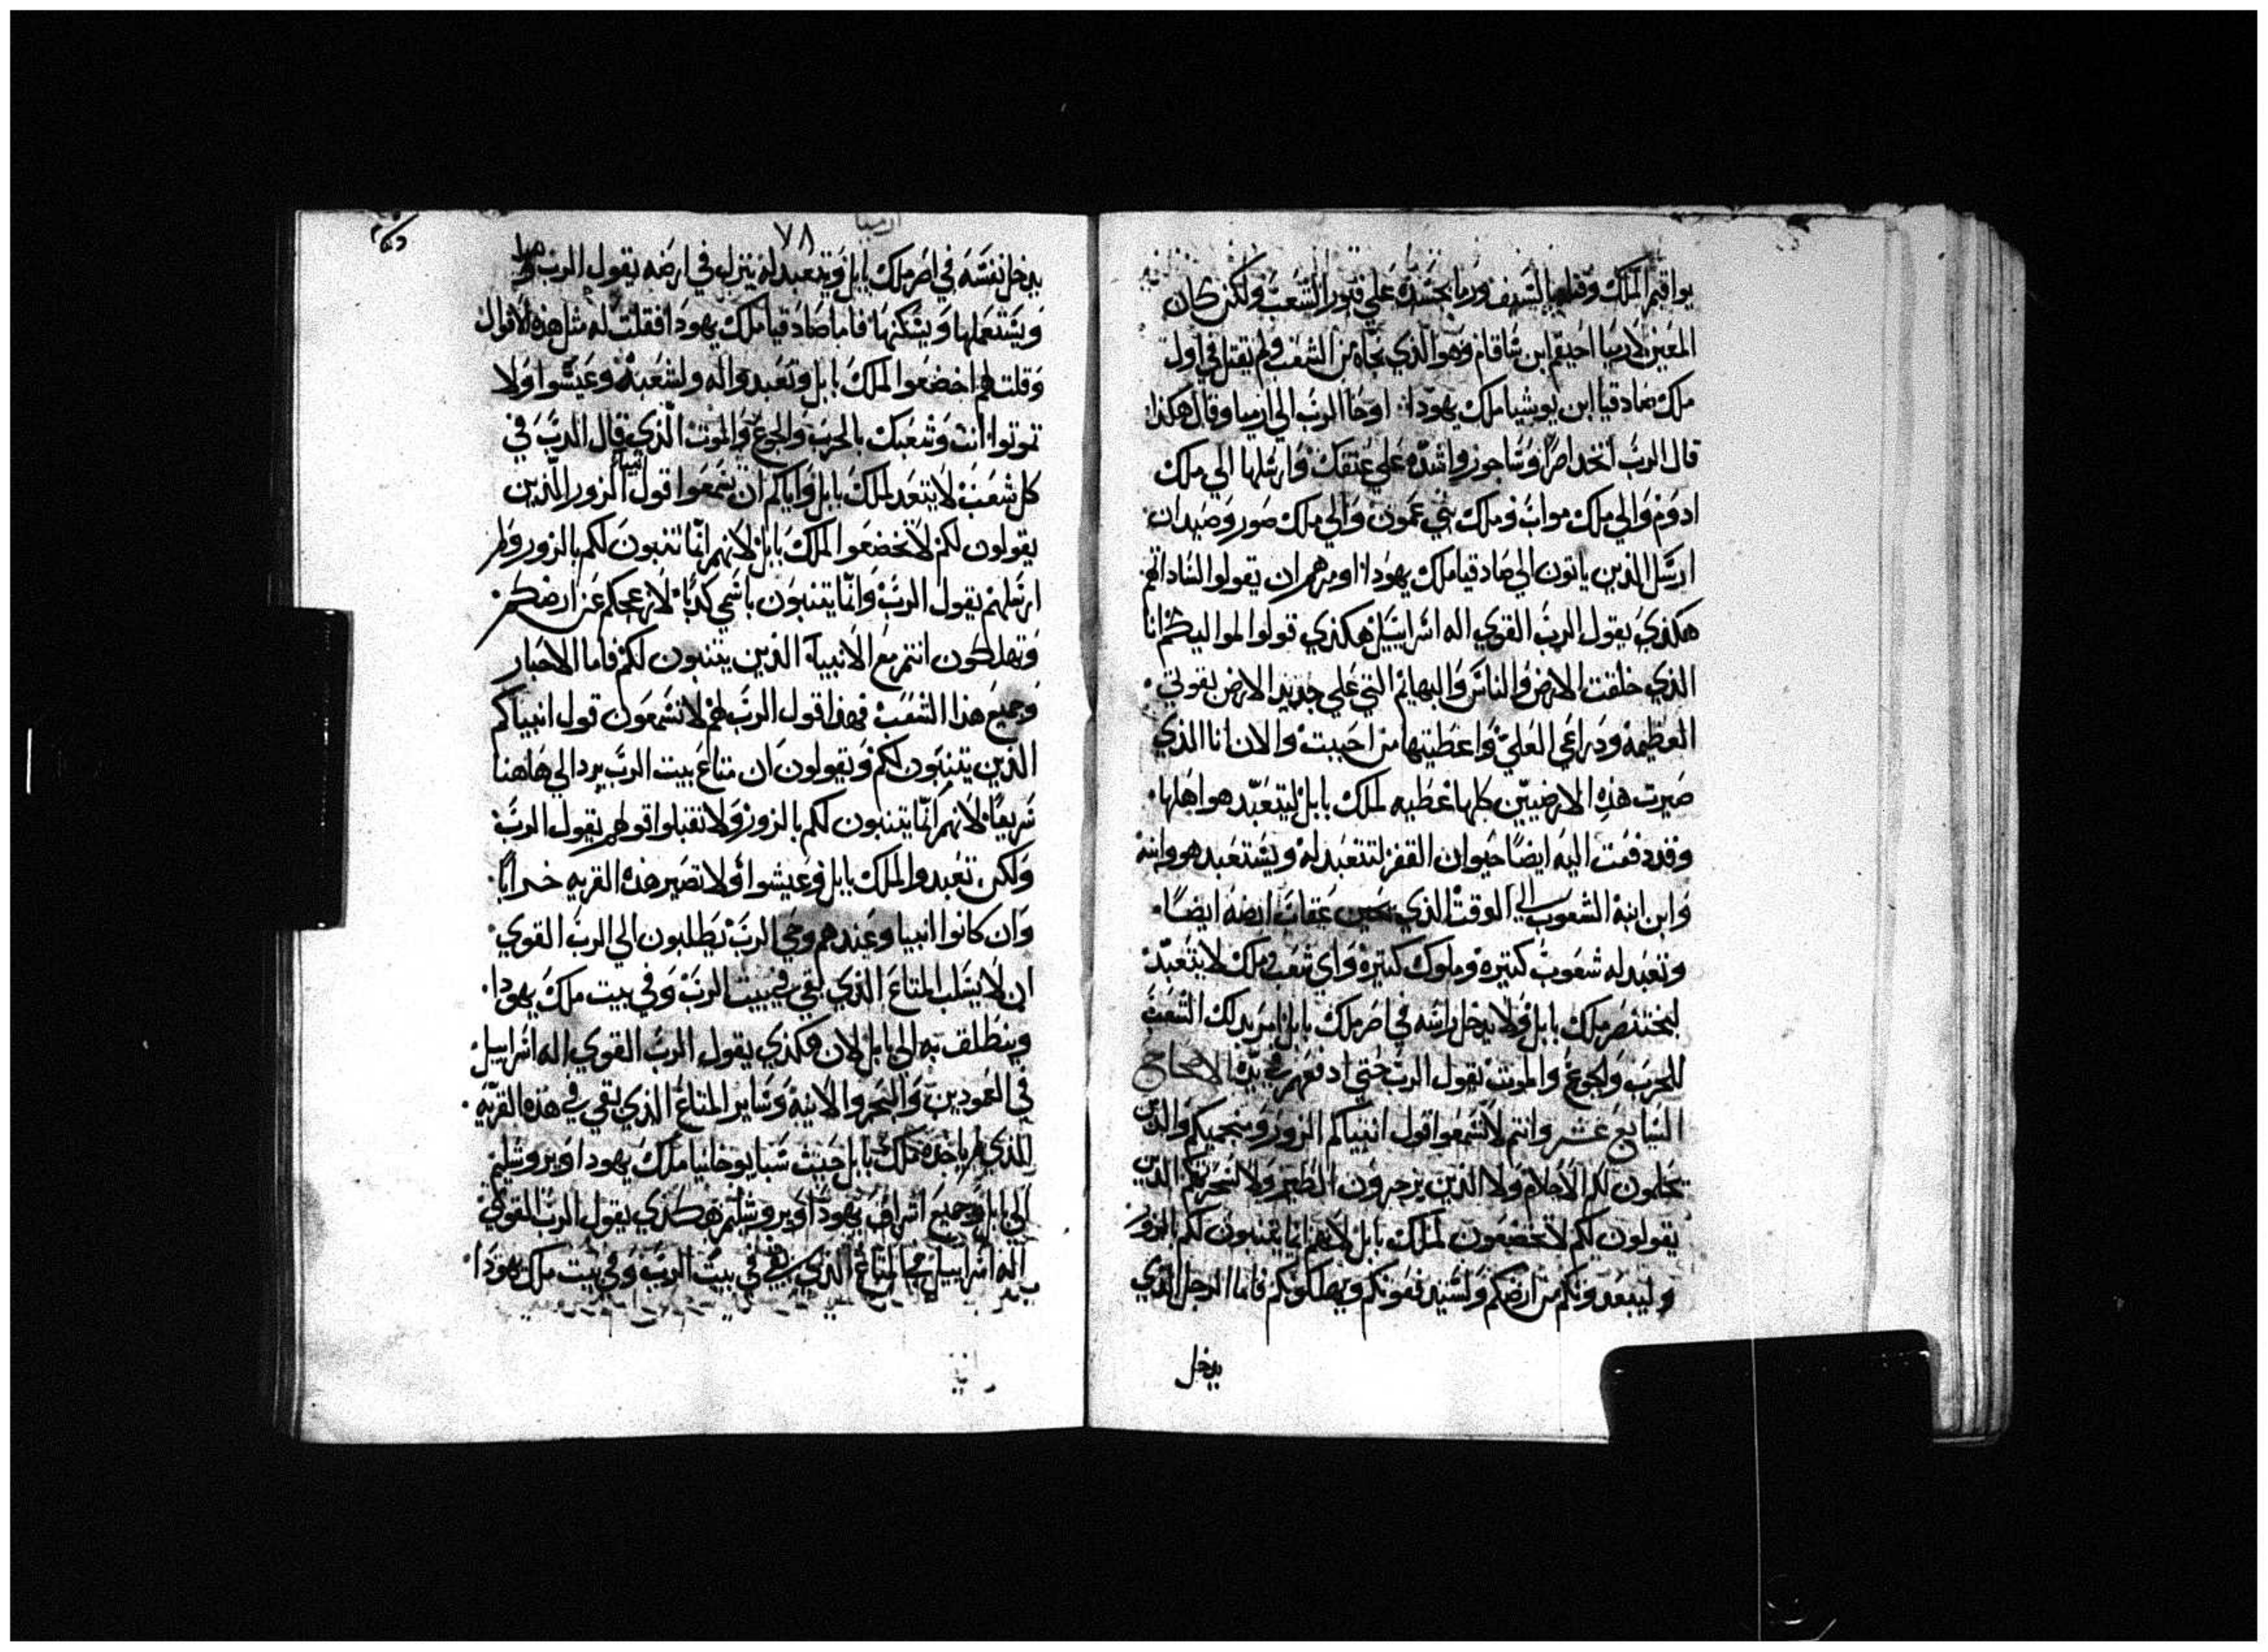 يواقيم الملك وقتله بالسيف ورما بجسده علي قبور الشعب ولكن كان
المعين لارميا احيقم ابن شاقان وهو الذي نجاه من الشعب ولم يقتل في اول
ملك صادقيا ابن يوشيا ملك يهودا: اوحا الرب الي ارميا وقال هكذا:
قال الرب اتخد اصرًا وساجور واشده علي عنقك وارسلها الي ملك
ادوم والي ملك مواب وملك بني عمون والي ملك صور وصيدان
ارسل الذين ياتون الي صادقيا ملك يهودا: اومرهم ان يقولوا لساداتهم
هكذي يقول الرب القوي اله اسراييل هكذي قولوا لمواليكم انا
الذي خلقت الارض والناس والبهايم التي علي جديد الارض بقوتي
العظيمه ودراعي العلي واعطيتها من احببت والان انا الذي
صيرت هذه الارضيين كلها عطيه لملك بابل ليتعبد هو اهلها
وقد دفعت اليه ايضًا حيوان القفر لتتعبد له ويستعبد هو وابنه
وابن ابنه الشعوب الي الوقت الذي عقاب ارضه ايضًا
وتعبد له شعوب كتيره وملوك كتيره واي شعب وملك لا يتعبد
لبختنصر ملك بابل ولا يدخل راسه في اصر ملك بابل دلك الشعب
للحرب والجوع والموت يقول الرب حتي ادفعهم في يده الاصحاح
السابع عشر وانتم لا تسمعوا قول انبياكم الزور ومنجميكم والدين
يحلمون لكم الاحلام ولا الذين يزجرون الطير ولا لسحرتكم الدين
يقولون لكم لا تخضعون لملك بابل لانهم انما يتنبون لكم الزور
وليبعدونكم من ارضكم ويهلكونكم فاما الرجل الذي
يدخل
ارميا
٧٨
يدخل نفسه في اصر ملك بابل ويتعبد له ينزل في ارضه يقول الرب
ويستعملها ويسكنها فاما صادقيا ملك يهودا فقلت له مثل هذه الاقوال
وقلت لهم اخضعوا لملك بابل وتعبدوا له ولشعبه وعيشوا ولا
تموتوا انت وشعبك بالحرب والجوع والموت الذي قال الرب في
كل شعب لا يتعبد لملك بابل واياكم ان تسمعوا قول انبياء الزور الذين
يقولون لكم لا تخضعوا لملك بابل لانهم انما يتنبون لكم بالزور ولم
ارسلهم يقول الرب وانما يتنبون باسمي كدبًا لازعجكم عن ارضكم
وتهلكون انتم مع الانبيآ الذين يتنبون لكم فاما الاحبار
وجميع هذا الشعب فهذا قول الرب لهم لا تسمعون قول انبياكم
الذين يتنبون لكم ويقولون ان متاع بيت الرب يرد الي هاهنا
سريعًا لانهم انما يتنبون لكم بالزور ولا تقبلوا قولهم يقول الرب
ولكن تعبدوا لملك بابل وعيشوا ولا تصير هذه القريه خرابًا
وان كانوا انبيا وعندهم وحي الرب يطلبون الي الرب القوي
ان لا يسلب المتاع الذي بقي في بيت الرب وفي بيت ملك يهودا
وينطلق به الي بابل لان هكذي يقول الرب القوي اله اسراييل
في العمودين والبحر والانيه وساير المتاع الذي بقي في هذه القريه
الذي لم ياخذه ملك بابل حيث سبا يوخانيا ملك يهودا ويروشليم
الي بابل وجميع اشراف يهودا ويروشليم هكذي يقول الرب القوي
اله اسراييل في المتاع الذي بقي في بيت الرب وفي بيت ملك يهودا